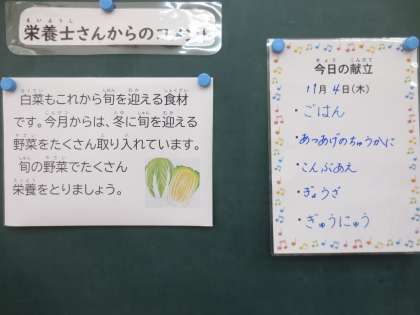 栄養士さんからのコメント
白菜もこれから旬を迎える食材
です。今月からは、冬に旬を迎える
野菜をたくさん取り入れています。
旬の野菜でたくさん
栄養をとりましょう。
今日の献立
11月4日(木)
・ごはん
・あつあげのちゅうかに
・こんぶあえ
・ぎょうざ
・ぎゅうにゅう